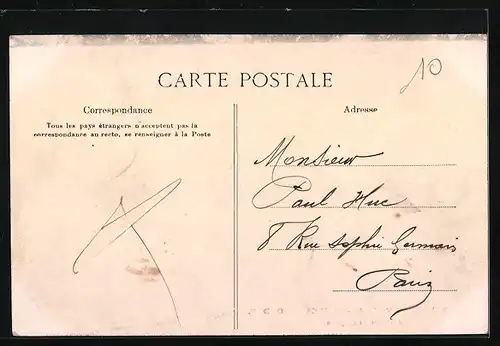 10
CARTE POSTALE
Correspondance
Tous les pays étrangers n'acceptent pas la
correspondance au recto, se renseigner à la Poste
Adresse
Monsieur
Paul Huc
8 Rue Sophie Germain
Paris